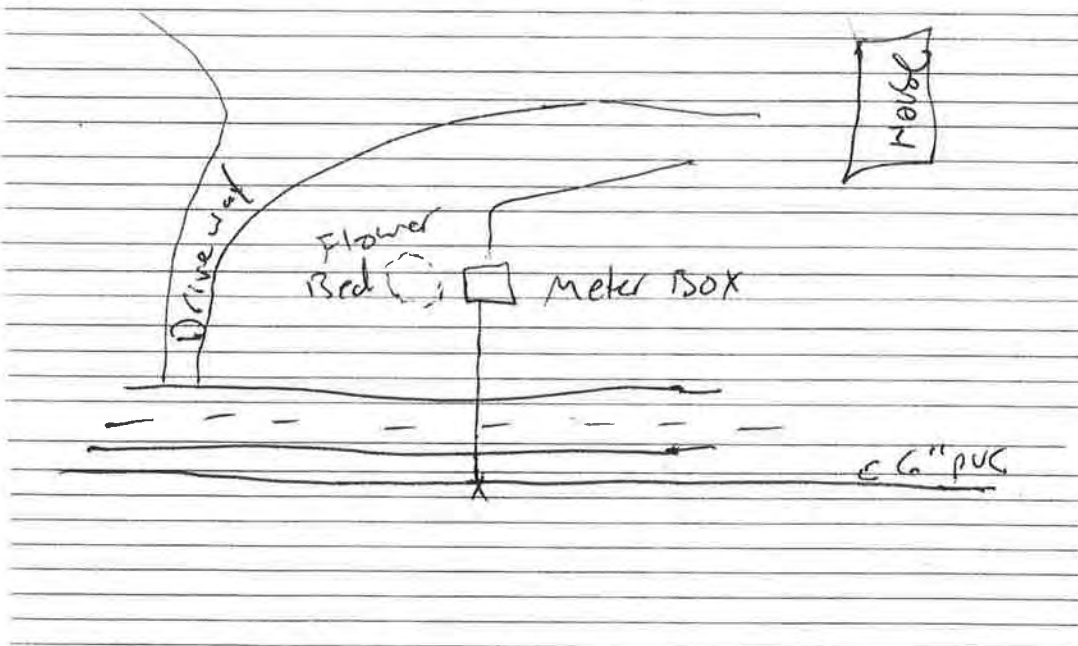 House
Driveway
Flower
Bed
Meter Box
6" PVC